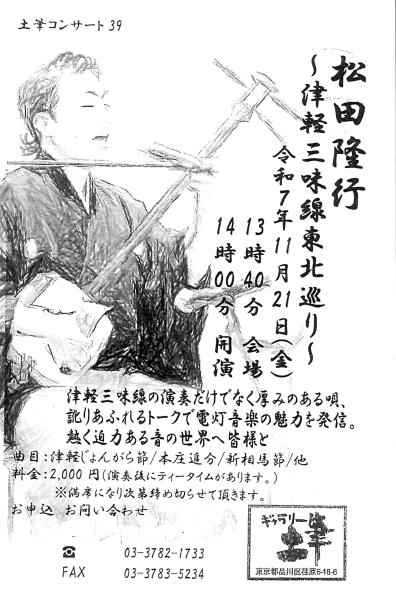 土筆コンサート39
松田隆行
～津軽三味線東北巡り～
令和7年11月21日(金)
13時40分 会場
14時00分 開演
津軽三味線の演奏だけでなく厚みのある唄、
訛りあふれるトークで電灯音楽の魅力を発信。
熱く迫力ある音の世界へ皆様と
曲目:津軽じょんがら節/本庄追分/新相馬節/他
料金:2,000円(演奏後にティータイムがあります。)
※満席になり次第締め切らせて頂きます。
お申込 お問い合わせ
☎ 03-3782-1733
FAX 03-3783-5234
ギャラリー
土筆
東京都品川区荏原6-18-6